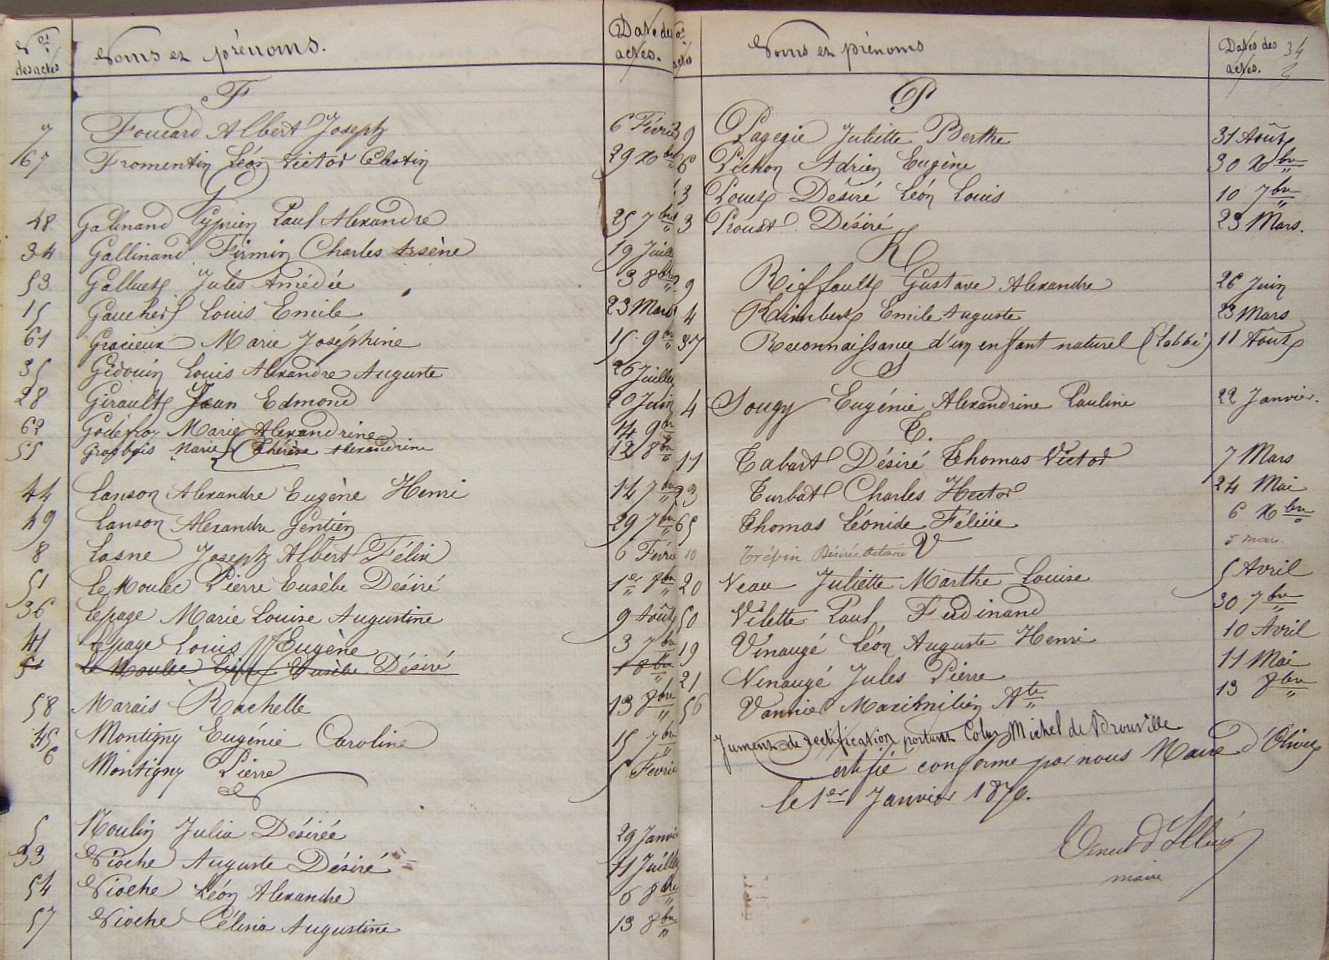 Nos des actes Noms et prénoms. Date des actes.
F
7 Foucard Albert Joseph 6 Févri
67 Fromentin Léon Victor 29 Xbre
G
48 Galinand Cyprien Paul Alexandre 25 7bre
34 Gallinand Firmin Charles Arsène 19 Juill
53 Galluet Jules Amédée 3 8bre
15 Gaucher Louis Emile 23 Mars
61 Gracieux Marie Joséphine 15 9bre
35 Gédouin Louis Alexandre Auguste 26 Juillet
28 Girault Jean Edmond 20 Juin
62 Godefroy Marie Alexandrine 14 9bre
55 Grosbois Marie Thérèse Alexandrine 12 8bre
L
44 Lanson Alexandre Eugène Henri 14 7bre
49 Lanson Alexandre Gentien 29 7bre
8 Lasne Joseph Albert Félix 6 Févri
51 Le Moulec Pierre Eusèbe Désiré 1er 8bre
36 Lepage Marie Louise Augustine 9 Août
41 Lepage Louis Eugène 3 7bre
51 Le Moulec Eusèbe Désiré 1 8bre
M
58 Marais Rachelle 13 8bre
45 Montigny Eugénie Caroline 15 7bre
6 Montigny Pierre 5 Févrie
N
5 Noulin Julia Désirée 29 Janvi
33 Nioche Auguste Désiré 11 Juillet
54 Nioche Léon Alexandre 6 8bre
57 Nioche Célina Augustine 13 8bre
os actes Noms et prénoms Dates des actes. 34
P
9 Pagegie Juliette Berthe 31 Août
6 Pichon Adrien Eugène 30 Xbre
3 Désiré Léon Louis 10 7bre
3 Proust Désiré 23 Mars.
R
9 Riffault Gustave Alexandre 26 Juin
4 Raimbert Emile Auguste 23 Mars
37 Reconnaissance d'un enfant naturel (Labbé) 11 Août
S
4 Sougy Eugénie Alexandrine Pauline 22 Janvier.
T.
11 Tabart Désiré Thomas Victor 7 Mars
23 Turbat Charles Hector 24 Mai
65 Thomas Léonide Félicie 6 Xbre
10 Trépin Désirée Octavie 5 mars
V
20 Veau Juliette Marthe Louise 5 Avril
50 Vilette Paul Ferdinand 30 7bre
19 Vinaugé Léon Auguste Henri 10 Avril
21 Vinaugé Jules Pierre 11 Mai
56 Vannier Maximilien Ate 13 8bre
Jument de rectification portant Colas Michel de Brouville
Certifié conforme par nous Maire d'Olivet
le 1er Janvier 1870.
maire